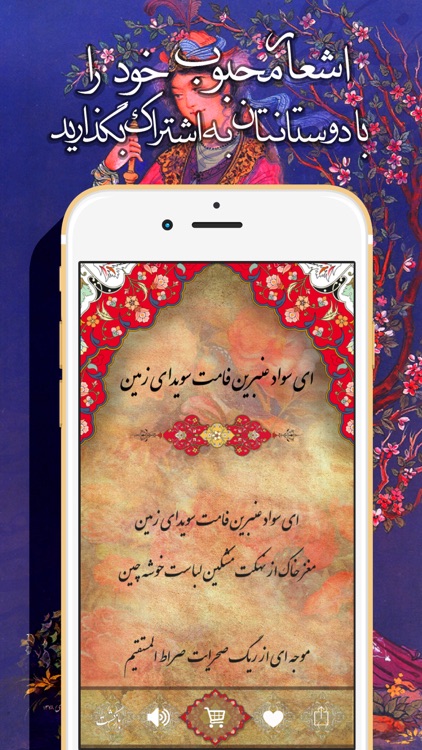 اشعار محبوب خود را
با دوستانتان به اشتراک بگذارید
ای سواد عنبرین فامت سویدای زمین
ای سواد عنبرین فامت سویدای زمین
مغز خاک از نهکت مشکین لباست خوشه چین
موجه ای از ریگ صحرایت صراط المستقیم
بازگشت